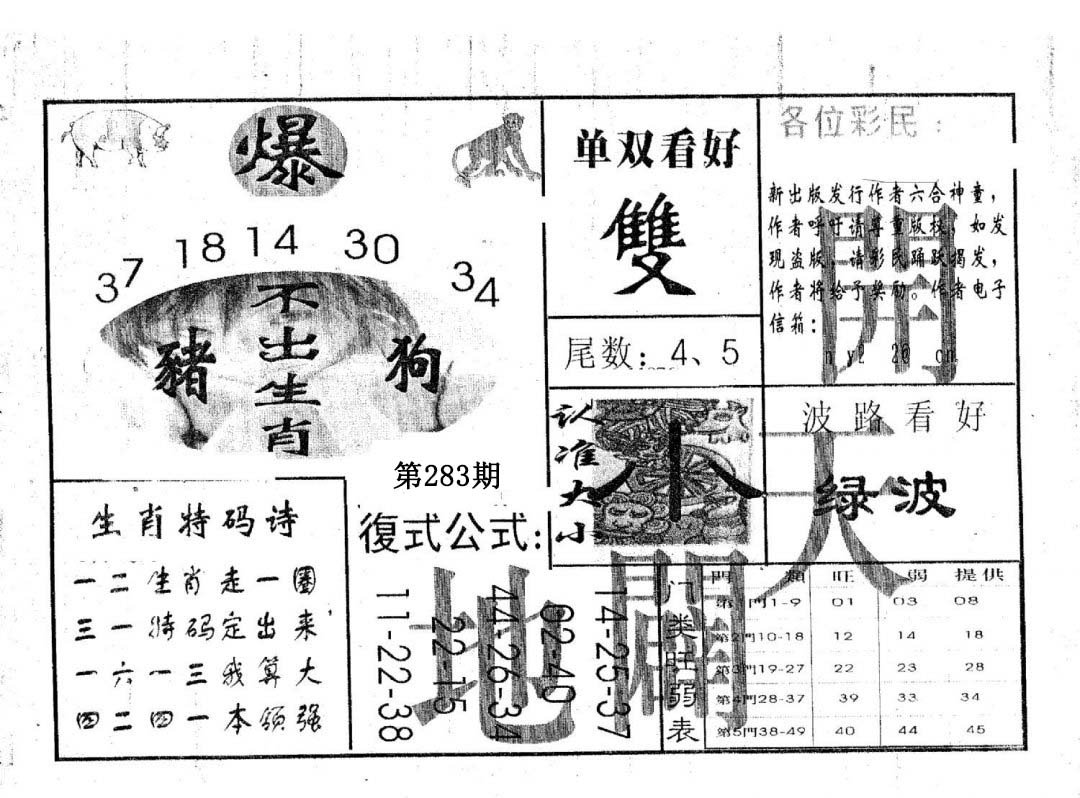 爆
37 18 14 30 34
不出生肖
豬
狗
第283期
单双看好
雙
尾数：4、5
各位彩民：
新出版发行作者六合神童，
作者呼吁请尊重版权，如发
现盗版，请彩民踊跃揭发，
作者将给予奖励。作者电子
信箱：
认准大小
小
波路看好
绿波
開天
地闢
生肖特码诗
一二生肖走一圈
三一特码定出来
一六一三我算大
四二四一本领强
復式公式：
11-22-38
22-15
44-26-34
02-40
14-25-37
门类旺弱表
門類 旺 弱 提供
第1門1-9 01 03 08
第2門10-18 12 14 18
第3門19-27 22 23 28
第4門28-37 39 33 34
第5門38-49 40 44 45